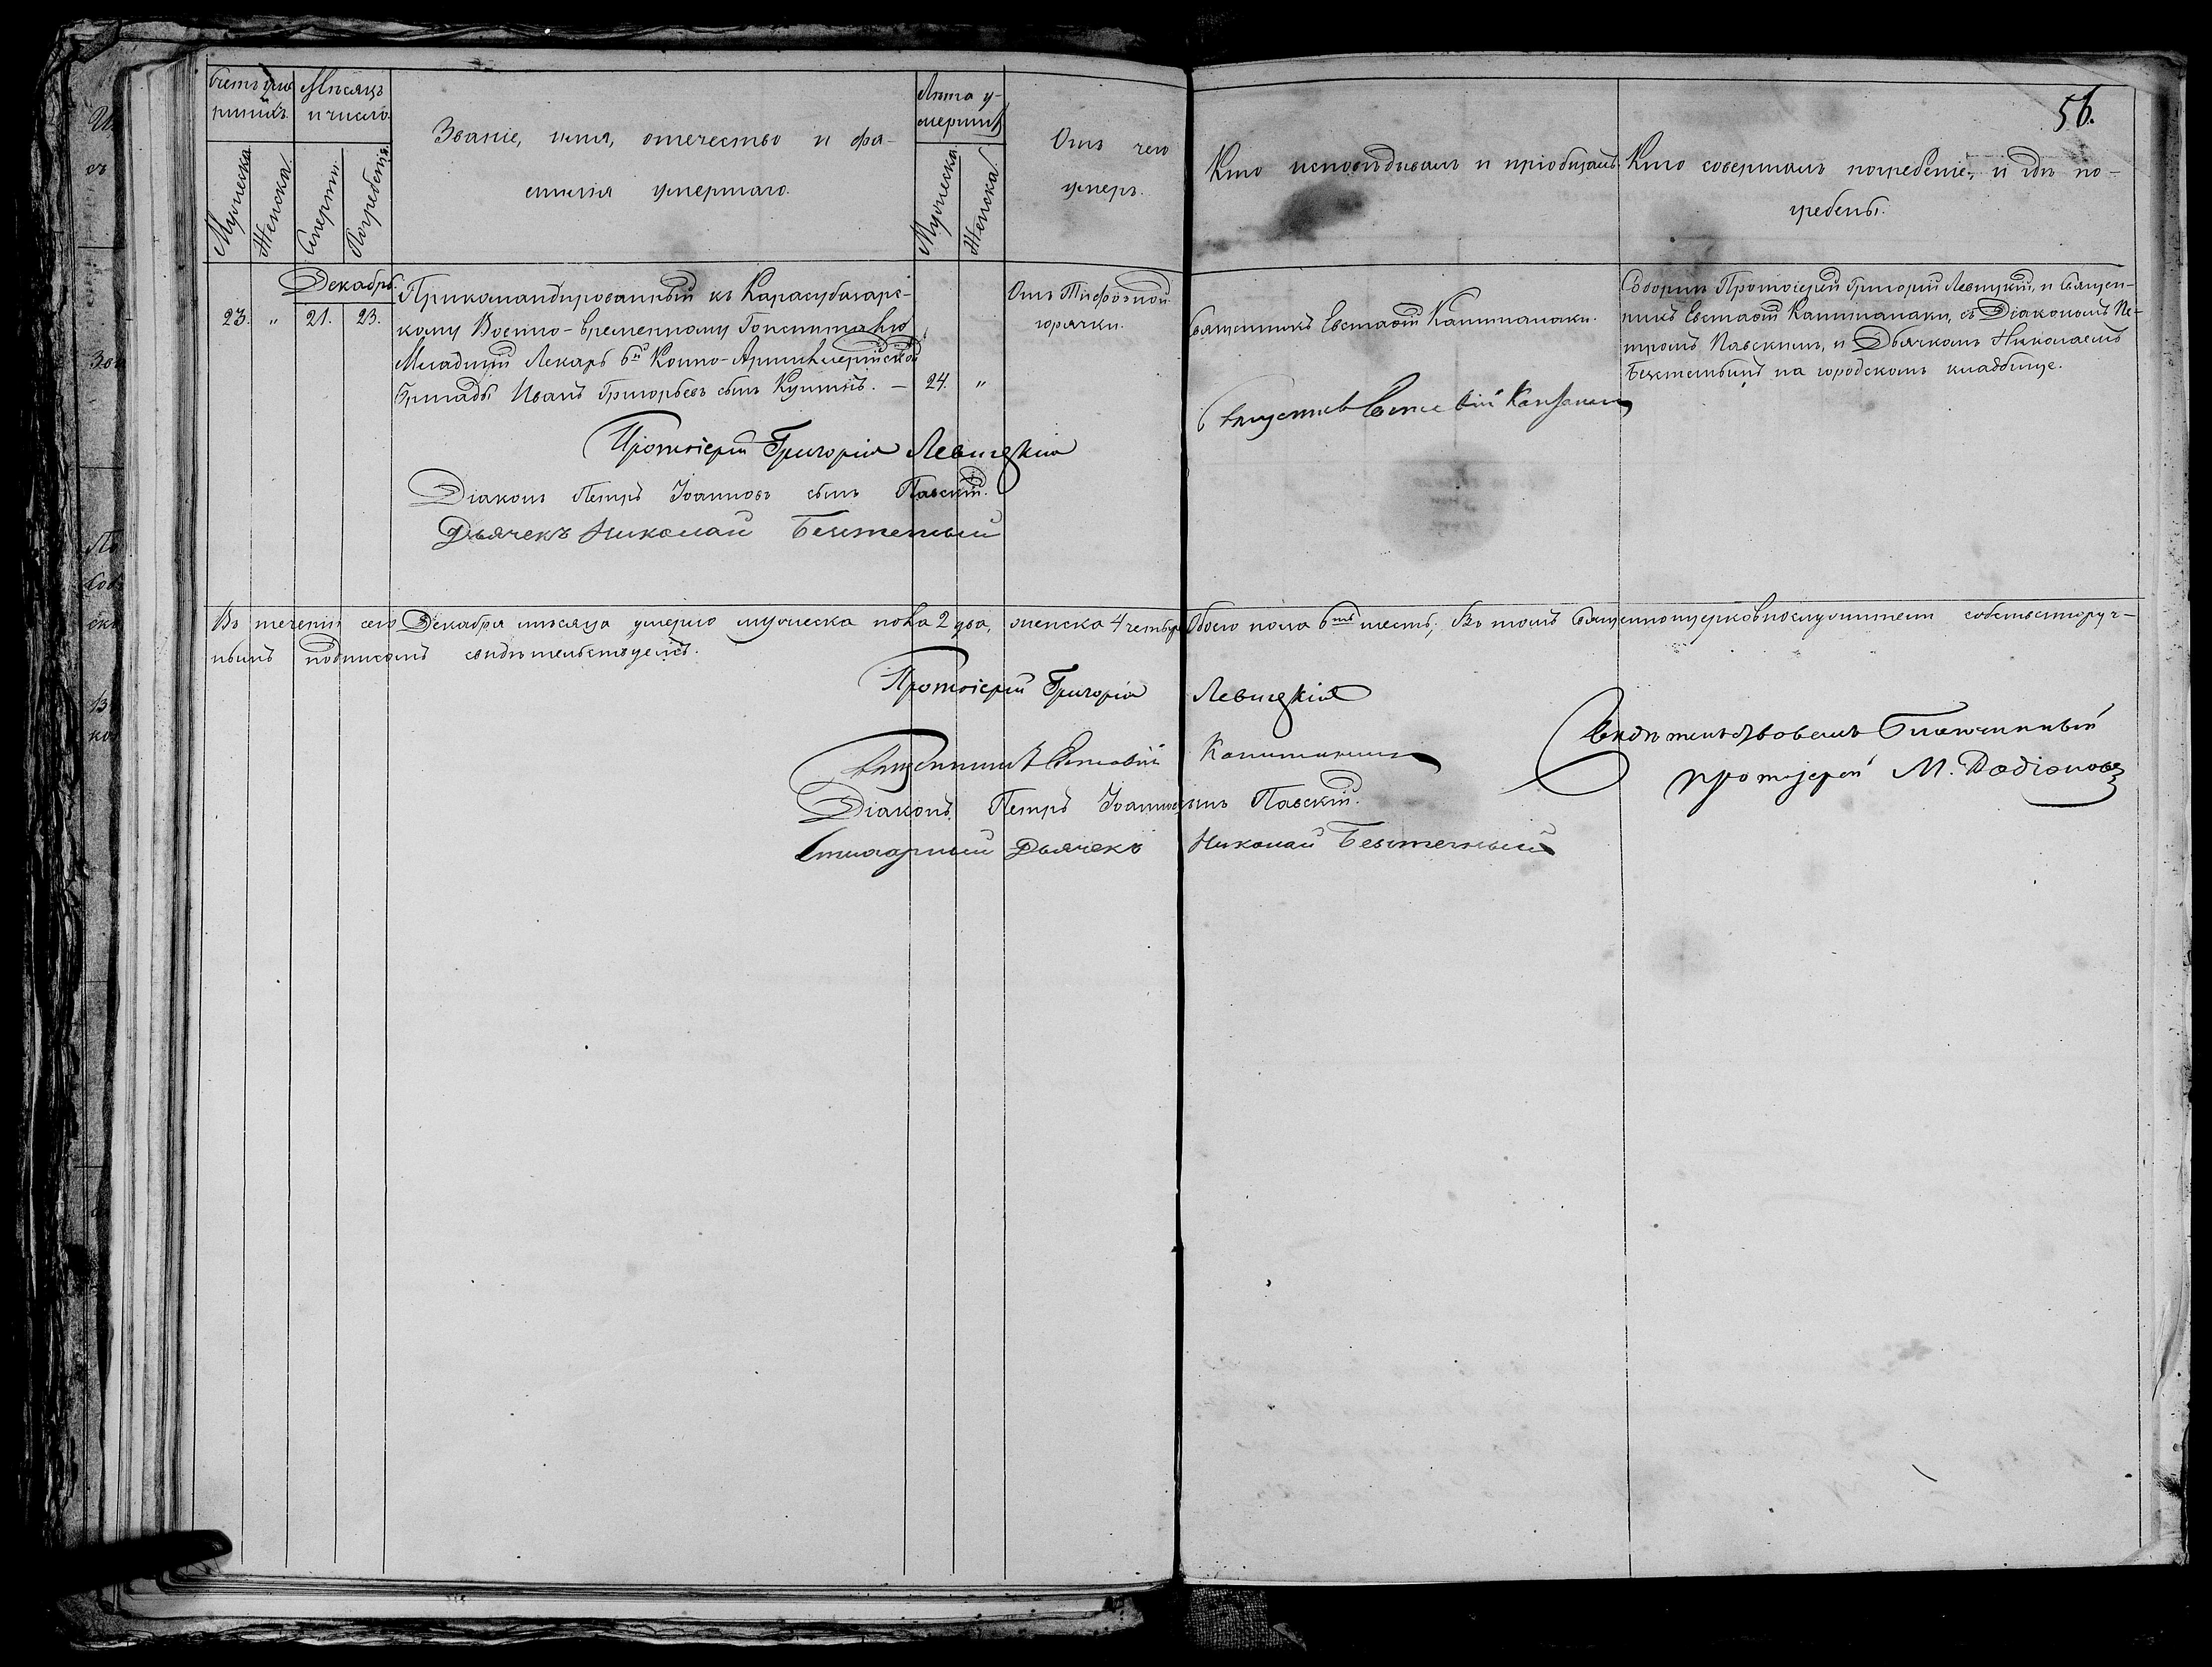 56.
Счетъ умер-
шихъ.
Мѣсяцъ
и число.
Званіе, имя, отечество и фа-
милія умершаго.
Лѣта у-
мершихъ
Отъ чего
умеръ.
Кто исповѣдывалъ и пріобщалъ.
Кто совершалъ погребеніе, и гдѣ по-
гребены.
Мужеска.
Женска.
Смерти.
Погребенія.
Мужеска.
Женска.
Декабрь.
23. " 21. 23.
Прикомандированный къ Карасубазарс-
кому Военно-временному Госпиталю
Младшій Лекарь 6й Конно-Артиллерійской
Бригады Иванъ Григорьевъ сынъ — 24. "
Отъ Тифозной
горячки.
Священникъ Евстафій Капитанаки.
Соборнѣ Протоіерей Григорій Левицкій, и Священ-
никъ Евстафій Капитанаки, съ Діакономъ Пе-
тромъ Павскимъ, и Дьячкомъ Николаемъ
на городскомъ кладбищѣ.
Священникъ Евстафій Капитанаки
Протоіерей Григорій Левицкій
Діаконъ Петръ Іоанновъ сынъ Павскій.
Дьячекъ Николай
Въ теченіи сего Декабря мѣсяца умерло мужеска пола 2 два, женска 4 четыре, Обоего пола 6ть шесть; Въ томъ Священноцерковнослужители собственоруч-
нымъ подписомъ свидѣтельствуемъ.
Протоіерей Григорій Левицкій
Священникъ Евстафій Капитанаки
Діаконъ Петръ Іоанновъ сынъ Павскій.
Стихарный Дьячекъ Николай
Свидѣтельствовалъ Благочинный
протоіерей М. Родіоновъ